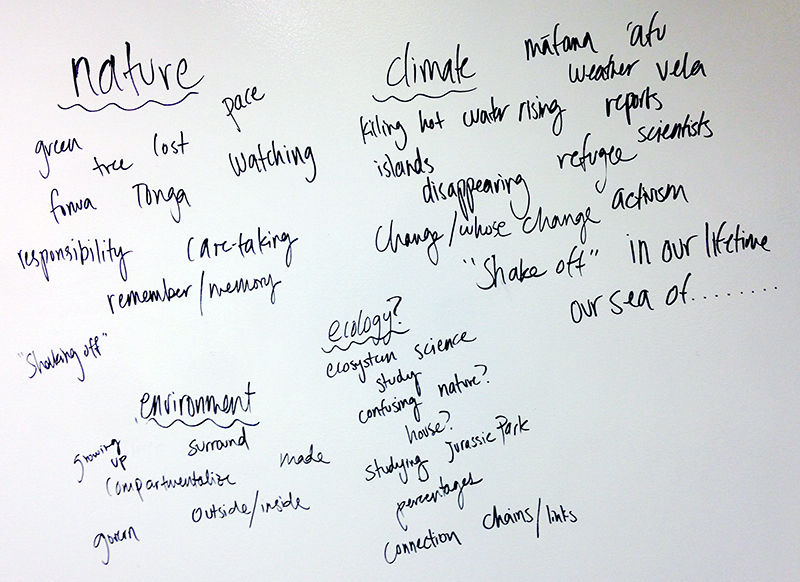 nature
pace
green
lost
tree
watching
fonua Tonga
responsibility
care-taking
remember/memory
"Shaking off"
climate
māfana 'afu
weather vela
killing hot water rising reports
islands
scientists
disappearing refugee
change/whose change activism
"Shake off" in our lifetime
our sea of........
ecology?
ecosystem science
study
confusing nature?
house?
studying Jurassic Park
percentages
connection chains/links
environment
growing up
surround
compartmentalize made
outside/inside
govern